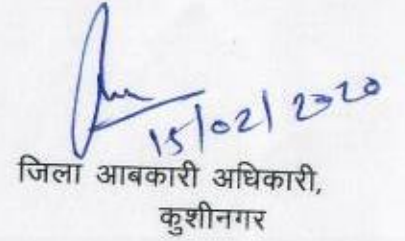 15/02/2020
जिला आबकारी अधिकारी,
कुशीनगर